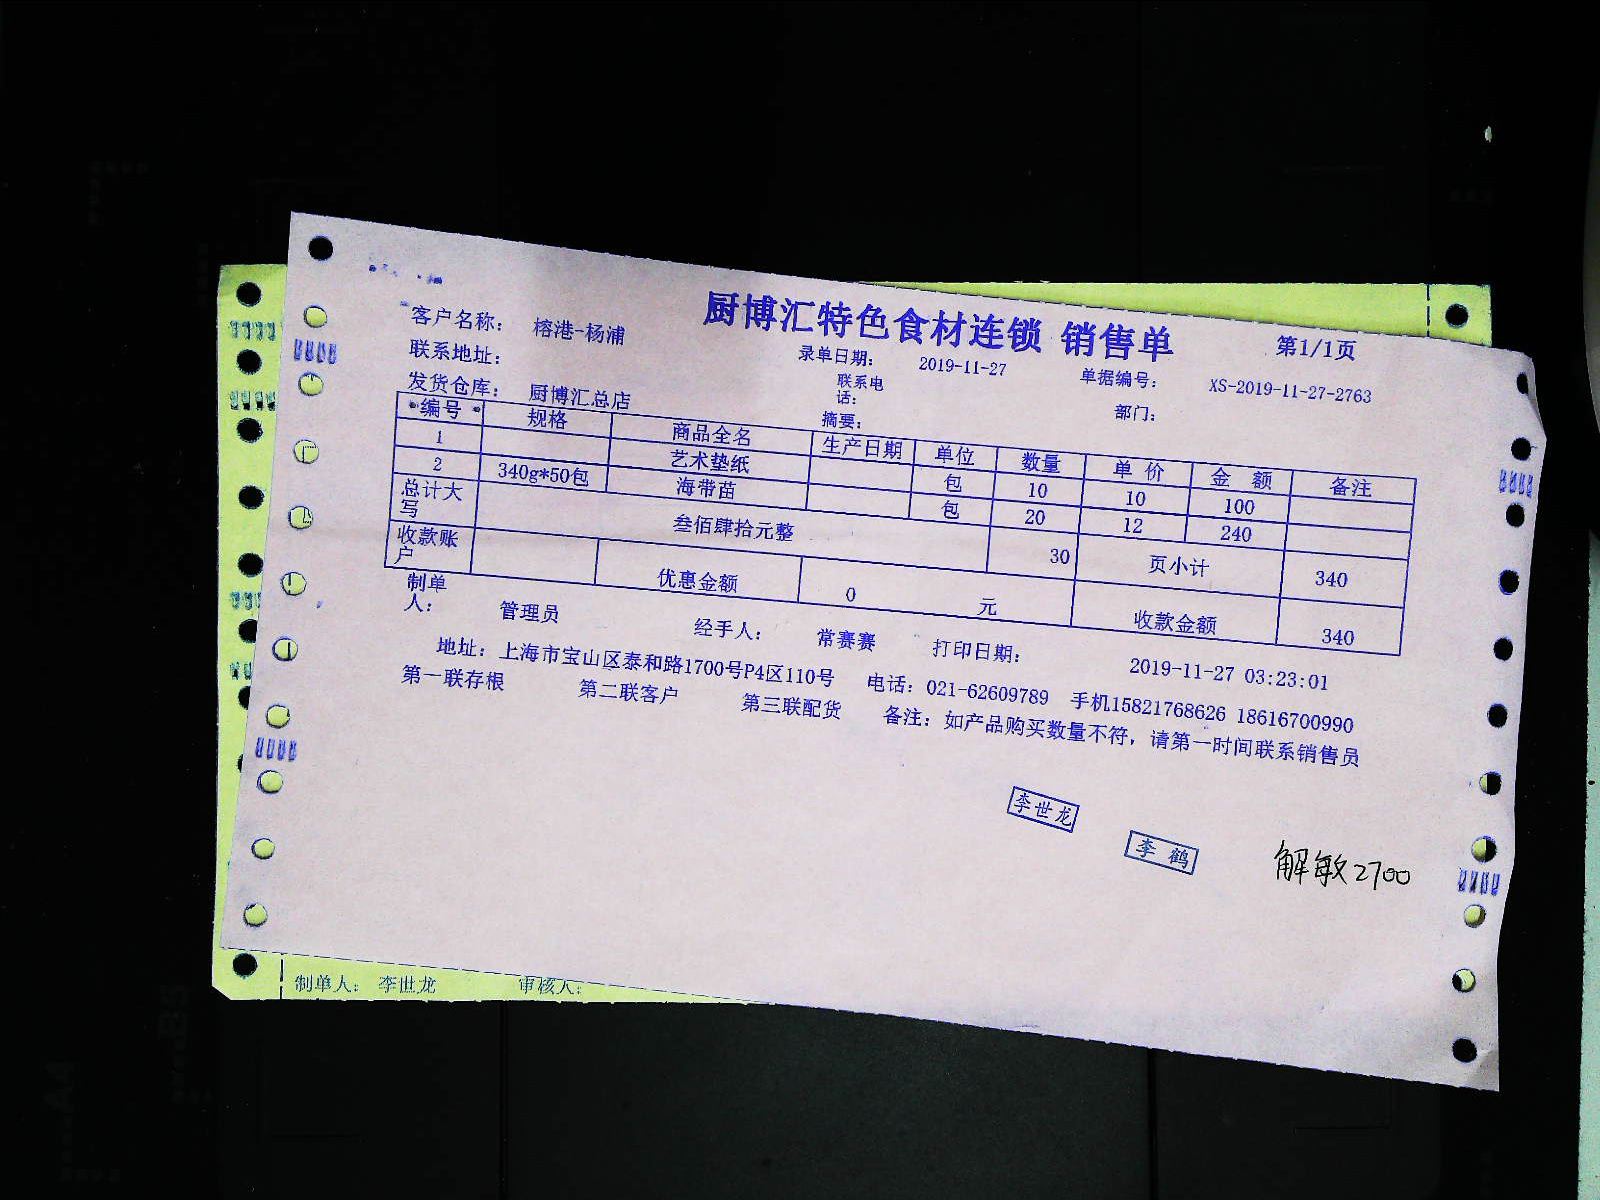 厨博汇特色食材连锁 销售单
第1/1页
客户名称： 榕港-杨浦
录单日期： 2019-11-27 单据编号： XS-2019-11-27-2763
联系地址： 联系电话： 部门：
发货仓库： 厨博汇总店 摘要：
编号 规格 商品全名 生产日期 单位 数量 单 价 金 额 备注
1 艺术垫纸 包 10 10 100
2 340g*50包 海带苗 包 20 12 240
总计大写 叁佰肆拾元整 30 页小计 340
收款账户 优惠金额 0 元 收款金额 340
制单人： 管理员 经手人： 常赛赛 打印日期： 2019-11-27 03:23:01
地址：上海市宝山区泰和路1700号P4区110号 电话：021-62609789 手机15821768626 18616700990
第一联存根 第二联客户 第三联配货 备注：如产品购买数量不符，请第一时间联系销售员
李世龙
李 鹤
解敏2700
制单人： 李世龙 审核人：